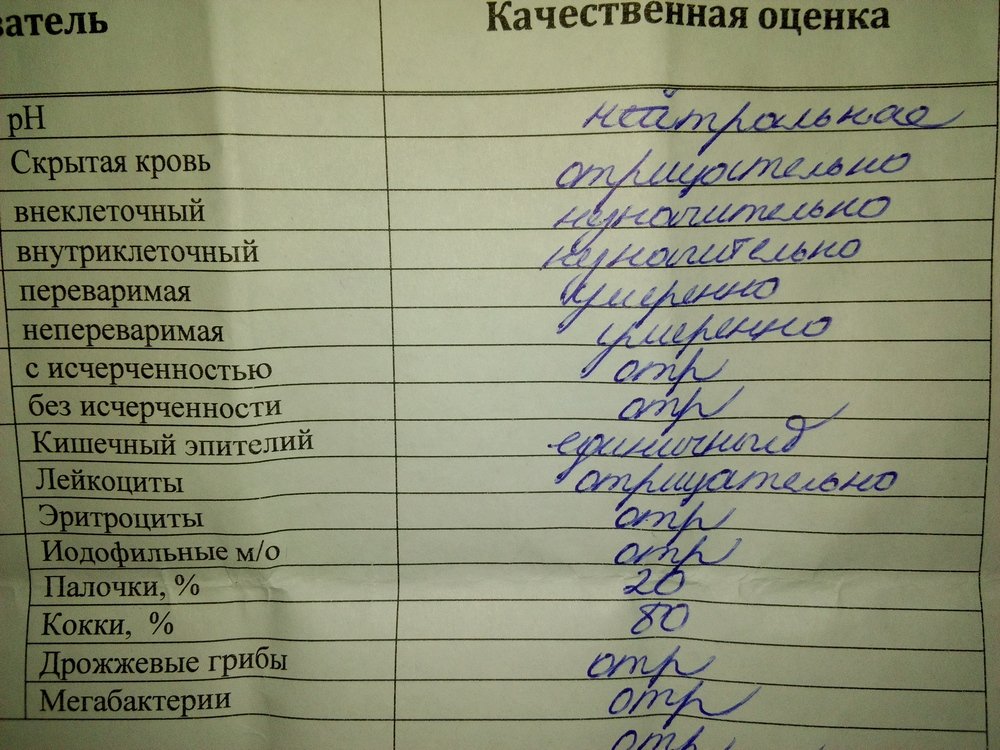 затель Качественная оценка
pH нейтральная
Скрытая кровь отрицательно
внеклеточный незначительно
внутриклеточный незначительно
переваримая умеренно
непереваримая умеренно
с исчерченностью отр
без исчерченности отр
Кишечный эпителий единичный
Лейкоциты отрицательно
Эритроциты отр
Иодофильные м/о отр
Палочки, % 20
Кокки, % 80
Дрожжевые грибы отр
Мегабактерии отр
отр